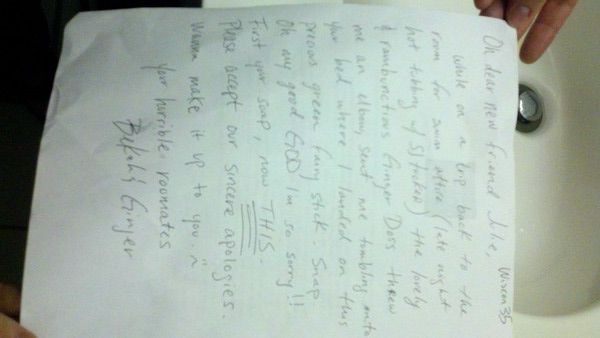 Oh dear new friend 35
While on a trip back to the
room for swim attire (late night
hot tubbing w/ SJ tucker) the lovely
& rambunctious Ginger Doss threw
me an elbow, sent me tumbling onto
your bed where I landed on this
precious green fairy stick. Snap.
Oh my good GOD Im so sorry!!
First your soap, now THIS.
Please accept our sincere apologies.
Wanna make it up to you.
Your horrible roomates
Bekah & Ginger